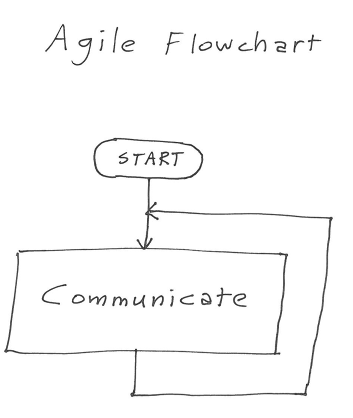 Agile Flowchart
START
Communicate